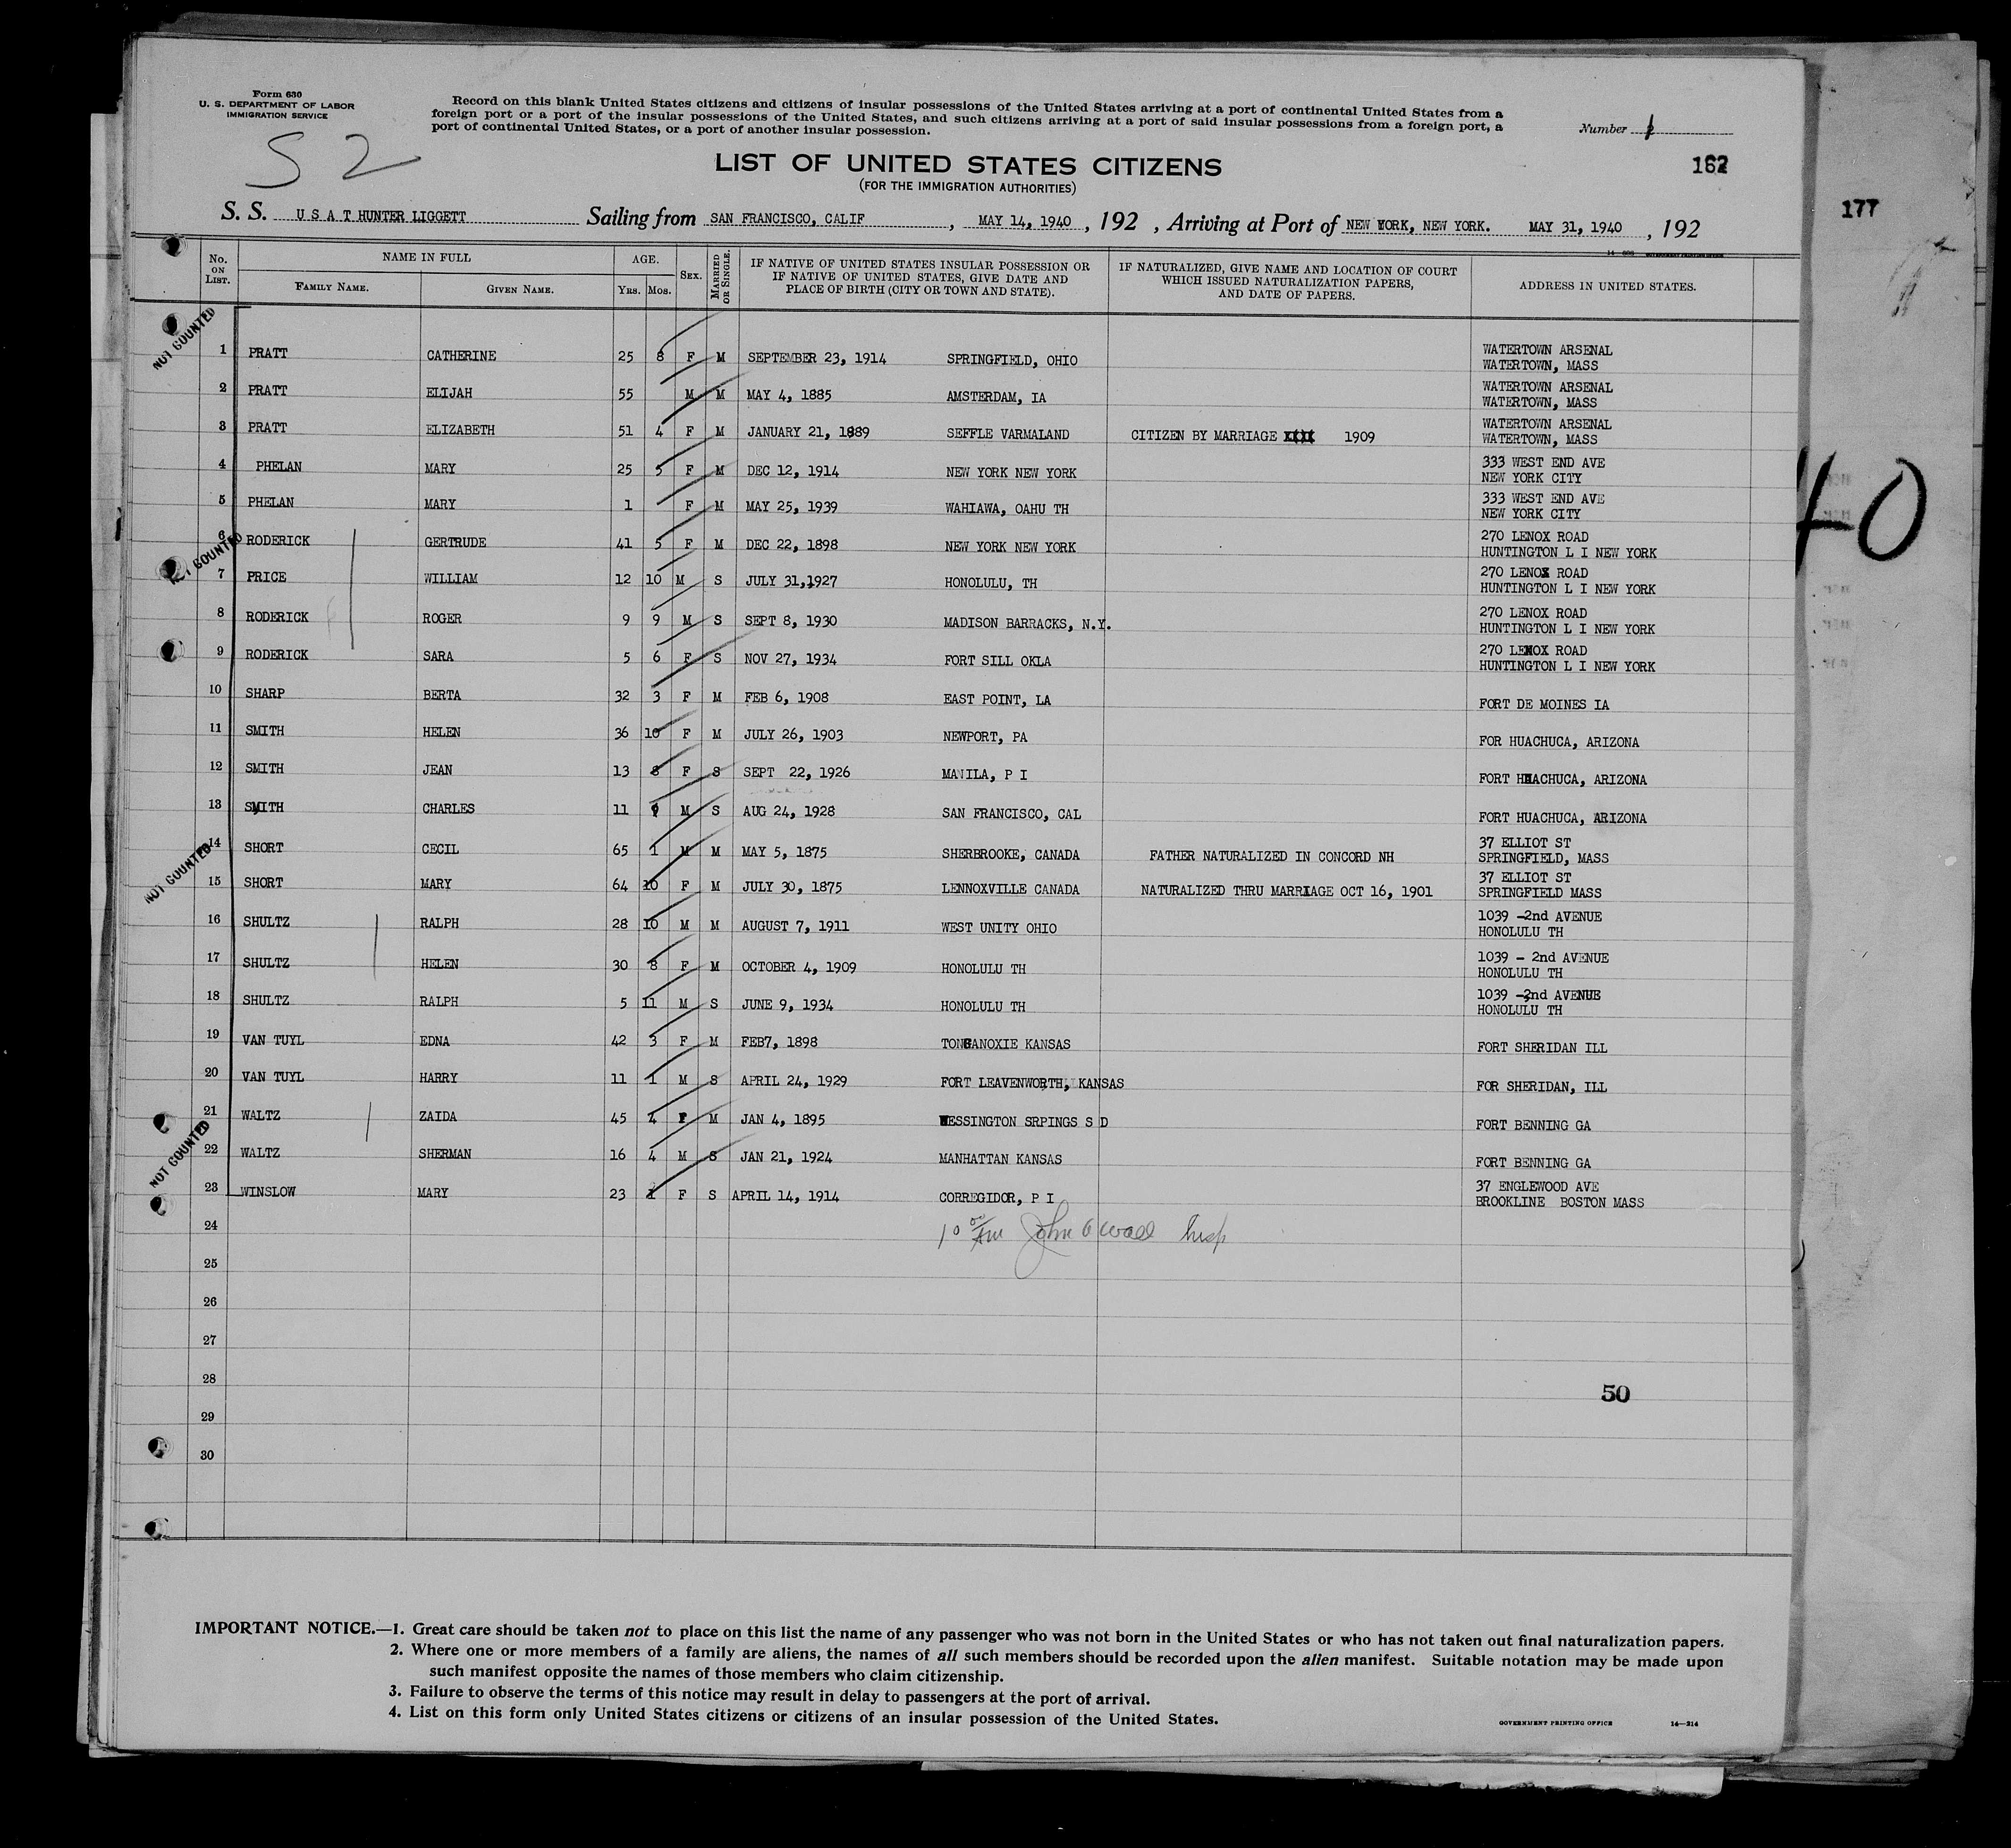 Form 630
U. S. DEPARTMENT OF LABOR
IMMIGRATION SERVICE
S 2
Record on this blank United States citizens and citizens of insular possessions of the United States arriving at a port of continental United States from a
foreign port or a port of the insular possessions of the United States, and such citizens arriving at a port of said insular possessions from a foreign port, a
port of continental United States, or a port of another insular possession.
Number
LIST OF UNITED STATES CITIZENS
(FOR THE IMMIGRATION AUTHORITIES)
162
177
S. S. U S A T HUNTER LIGGETT Sailing from SAN FRANCISCO, CALIF , MAY 14, 1940 , 192 , Arriving at Port of NEW YORK, NEW YORK. MAY 31, 1940 , 192
No. ON LIST. NAME IN FULL FAMILY NAME. GIVEN NAME. AGE. YRS. MOS. SEX. MARRIED OR SINGLE. IF NATIVE OF UNITED STATES INSULAR POSSESSION OR IF NATIVE OF UNITED STATES, GIVE DATE AND PLACE OF BIRTH (CITY OR TOWN AND STATE). IF NATURALIZED, GIVE NAME AND LOCATION OF COURT WHICH ISSUED NATURALIZATION PAPERS, AND DATE OF PAPERS. ADDRESS IN UNITED STATES.
NOT COUNTED
1 PRATT CATHERINE 25 8 F M SEPTEMBER 23, 1914 SPRINGFIELD, OHIO WATERTOWN ARSENAL WATERTOWN, MASS
2 PRATT ELIJAH 55 M M MAY 4, 1885 AMSTERDAM, IA WATERTOWN ARSENAL WATERTOWN, MASS
3 PRATT ELIZABETH 51 4 F M JANUARY 21, 1889 SEFFLE VARMALAND CITIZEN BY MARRIAGE 1909 WATERTOWN ARSENAL WATERTOWN, MASS
4 PHELAN MARY 25 5 F M DEC 12, 1914 NEW YORK NEW YORK 333 WEST END AVE NEW YORK CITY
5 PHELAN MARY 1 F M MAY 25, 1939 WAHIAWA, OAHU TH 333 WEST END AVE NEW YORK CITY
40
NOT COUNTED
6 RODERICK GERTRUDE 41 5 F M DEC 22, 1898 NEW YORK NEW YORK 270 LENOX ROAD HUNTINGTON L I NEW YORK
7 PRICE WILLIAM 12 10 M S JULY 31,1927 HONOLULU, TH 270 LENOX ROAD HUNTINGTON L I NEW YORK
8 RODERICK ROGER 9 9 M S SEPT 8, 1930 MADISON BARRACKS, N.Y. 270 LENOX ROAD HUNTINGTON L I NEW YORK
9 RODERICK SARA 5 6 F S NOV 27, 1934 FORT SILL OKLA 270 LENOX ROAD HUNTINGTON L I NEW YORK
10 SHARP BERTA 32 3 F M FEB 6, 1908 EAST POINT, LA FORT DE MOINES IA
11 SMITH HELEN 36 10 F M JULY 26, 1903 NEWPORT, PA FOR HUACHUCA, ARIZONA
12 SMITH JEAN 13 8 F S SEPT 22, 1926 MANILA, P I FORT HUACHUCA, ARIZONA
13 SMITH CHARLES 11 9 M S AUG 24, 1928 SAN FRANCISCO, CAL FORT HUACHUCA, ARIZONA
NOT COUNTED
14 SHORT CECIL 65 1 M M MAY 5, 1875 SHERBROOKE, CANADA FATHER NATURALIZED IN CONCORD NH 37 ELLIOT ST SPRINGFIELD, MASS
15 SHORT MARY 64 10 F M JULY 30, 1875 LENNOXVILLE CANADA NATURALIZED THRU MARRIAGE OCT 16, 1901 37 ELLIOT ST SPRINGFIELD MASS
16 SHULTZ RALPH 28 10 M M AUGUST 7, 1911 WEST UNITY OHIO 1039 -2nd AVENUE HONOLULU TH
17 SHULTZ HELEN 30 8 F M OCTOBER 4, 1909 HONOLULU TH 1039 - 2nd AVENUE HONOLULU TH
18 SHULTZ RALPH 5 11 M S JUNE 9, 1934 HONOLULU TH 1039 -2nd AVENUE HONOLULU TH
19 VAN TUYL EDNA 42 3 F M FEB7, 1898 TONGANOXIE KANSAS FORT SHERIDAN ILL
20 VAN TUYL HARRY 11 1 M S APRIL 24, 1929 FORT LEAVENWORTH, KANSAS FOR SHERIDAN, ILL
21 WALTZ ZAIDA 45 4 F M JAN 4, 1895 WESSINGTON SRPINGS S D FORT BENNING GA
NOT COUNTED
22 WALTZ SHERMAN 16 4 M S JAN 21, 1924 MANHATTAN KANSAS FORT BENNING GA
23 WINSLOW MARY 23 1 F S APRIL 14, 1914 CORREGIDOR, P I 37 ENGLEWOOD AVE BROOKLINE BOSTON MASS
24 10 00 AM John Wall Insp
25
26
27
28 50
29
30
IMPORTANT NOTICE.—1. Great care should be taken not to place on this list the name of any passenger who was not born in the United States or who has not taken out final naturalization papers.
2. Where one or more members of a family are aliens, the names of all such members should be recorded upon the alien manifest. Suitable notation may be made upon
such manifest opposite the names of those members who claim citizenship.
3. Failure to observe the terms of this notice may result in delay to passengers at the port of arrival.
4. List on this form only United States citizens or citizens of an insular possession of the United States.
GOVERNMENT PRINTING OFFICE 14—214